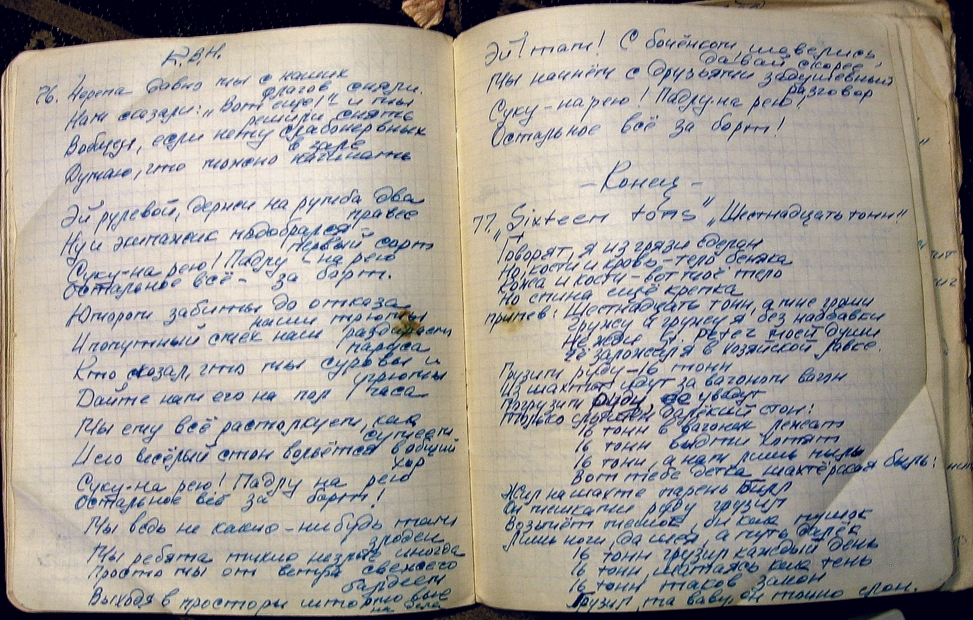 К.В.Н.
76. Черепа давно мы с наших
флагов сняли.
Нам сказали: „Вот ещё!" и мы
решили снять
В общем, если нету слабонервных
в зале
Думаю, что можно начинать
Эй рулевой, держи на румба два
правее
Ну и экипажик подобрался
первый сорт
Суку-на рею! Падлу - на рею
Остальное всё - за борт.
Ютоном забиты до отказа
наши трюмы
И попутный смех наши раздирает
паруса
Кто сказал, что мы суровы и
угрюмы
Дайте нам его на пол часа
Мы ему всё растолкуем, как
сумеем
И его весёлый стон вольётся в общий
хор
Суку-на рею! Падлу на рею
Остальное всё за борт!
Мы ведь не какие-нибудь там
злодеи
Мы ребята тихие иногда
Просто мы от ветра свежего
балдеем
Выходя в просторы штормовые
Эй! там! С бочёнком, шевелись
давай скорее!
Мы начнём с друзьями задушевный
разговор
Суку-на рею! Падлу-на рею!
Остальное всё за борт!
-Конец-
77. „Sixteen tons" „Шестнадцать тонн"
Говорят, я из грязи сделан
Но, кости и кровь-тело бедняка
Кожа и кости-вот моё тело
Но спина ещё крепка
припев: Шестнадцать тонн, а мне гроши
гружу, а гружу я, без надбавки
Не жди Св. Petеr моей души
Её заложил я в хозяйской лавке.
Грузим руду-16 тонн
Из шахты идут за вагоном вагон
Погрузим руду, её увезут
Только слышен далёкий стон:
16 тонн в вагонах лежат
16 тонн выдти хотят
16 тонн, а нам лишь пыль
Вот тебе детка шахтёрская быль:
Жил на шахте парень Билл
Он мешками руду грузил
Возьмёт мешок, он как мушок
Лишь ноги, да шея, а путь далёк
16 тонн грузил каждый день
16 тонн шатаясь как тень
16 тонн таков закон
Грузил, та ваву, он точно слон.